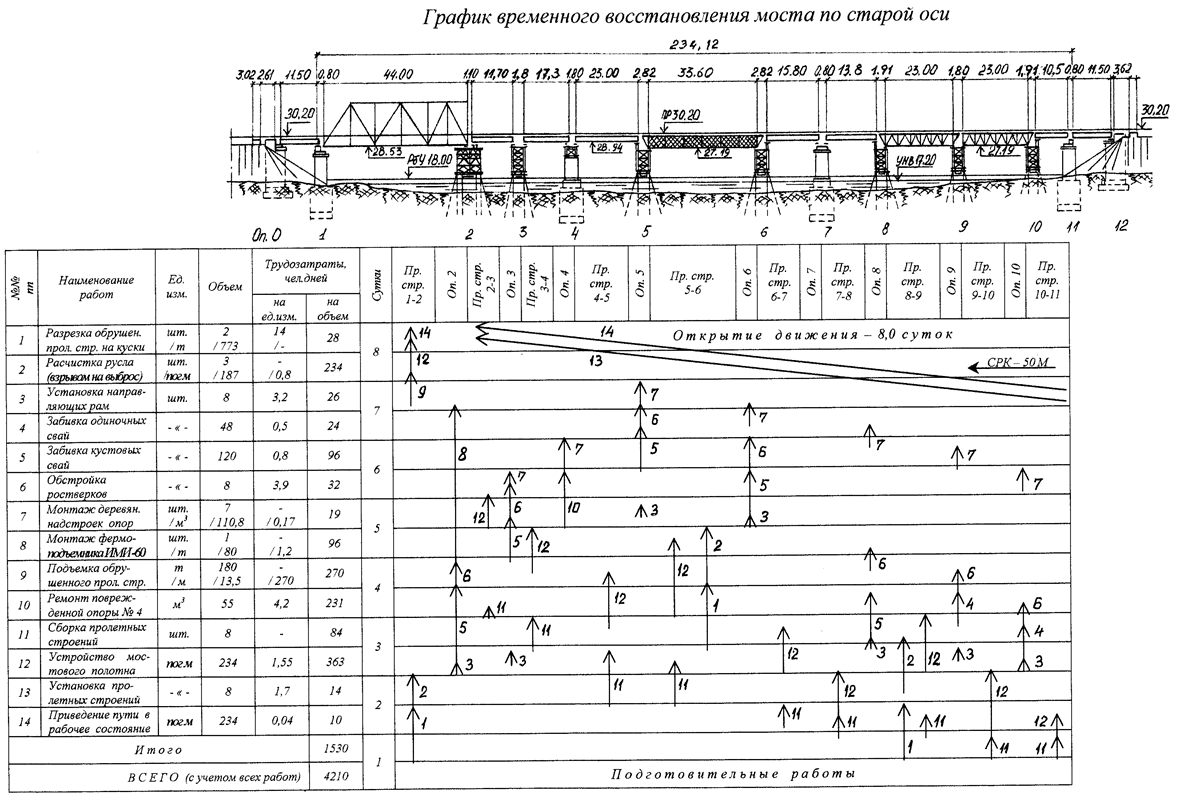 График временного восстановления моста по старой оси
234,12
3.02 2.61 11.50 0.80 44.00 1.10 11,70 1,8 17,3 1,80 23.00 2,82 33.60 2.82 15.80 0,80 13.8 1.91 23.00 1,80 23.00 1,91 10,5 0,80 11.50 3,62
30,20 ПР 30.20 30,20
28.53 РБУ 18.00 28.94 27.19 УНВ 17.20 27.19
Оп. 0 1 2 3 4 5 6 7 8 9 10 11 12
№№ пп Наименование работ Ед. изм. Объем Трудозатраты, чел.дней Сутки Пр. стр. 1-2 Оп. 2 Пр. стр. 2-3 Оп. 3 Пр. стр. 3-4 Оп. 4 Пр. стр. 4-5 Оп. 5 Пр. стр. 5-6 Оп. 6 Пр. стр. 6-7 Оп. 7 Пр. стр. 7-8 Оп. 8 Пр. стр. 8-9 Оп. 9 Пр. стр. 9-10 Оп. 10 Пр. стр. 10-11
на ед.изм. на объем
1 Разрезка обрушен. прол. стр. на куски шт. / т 2 / 773 14 / - 28
2 Расчистка русла (взрывом на выброс) шт. /погм 3 / 187 - / 0,8 234
3 Установка направ- ляющих рам шт. 8 3,2 26
4 Забивка одиночных свай - « - 48 0,5 24
5 Забивка кустовых свай -«- 120 0,8 96
6 Обстройка ростверков - « - 8 3,9 32
7 Монтаж деревян. надстроек опор шт. / м³ 7 / 110,8 - / 0,17 19
8 Монтаж фермо- подъемника ИМИ-60 шт. / т 1 / 80 - / 1,2 96
9 Подъемка обру- щенного прол. стр. т / м 180 / 13,5 - / 270 270
10 Ремонт повреж- денной опоры № 4 м³ 55 4,2 231
11 Сборка пролетных строений шт. 8 - 84
12 Устройство мос- тового полотна погм 234 1,55 363
13 Установка про- летных строений -«- 8 1,7 14
14 Приведение пути в рабочее состояние погм 234 0,04 10
Итого 1530
ВСЕГО (с учетом всех работ) 4210
8
14 14 Открытие движения – 8,0 суток
12 13 СРК – 50 М
9 7
7
7
6 7
8 7 5 6 7 7
6
7 5 7
6 10 3
12 3
5
5 12 2
12 6
4
6 12 1 6
11 5 4 6
5 11 4
3
3 3 12 3 2 12 3 3
11 11
2 12 12
2
11 11 11 12
1 1 11 11
1
Подготовительные работы